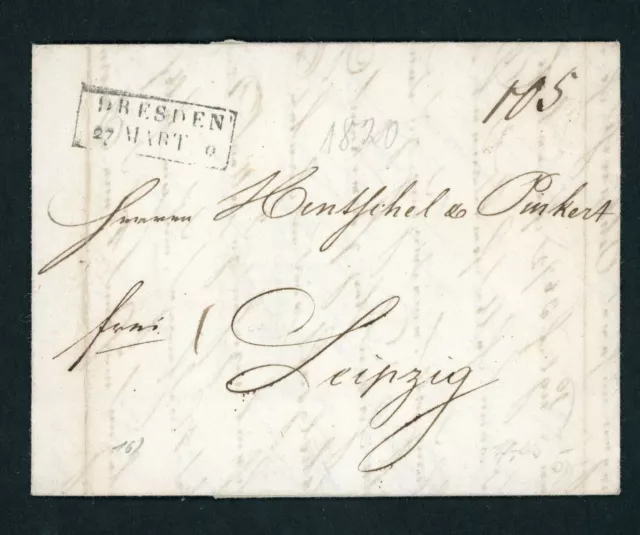 DRESDEN
27 MART 0
105
1820
Herren Hentschel & Pinkert
frei
Leipzig
16)